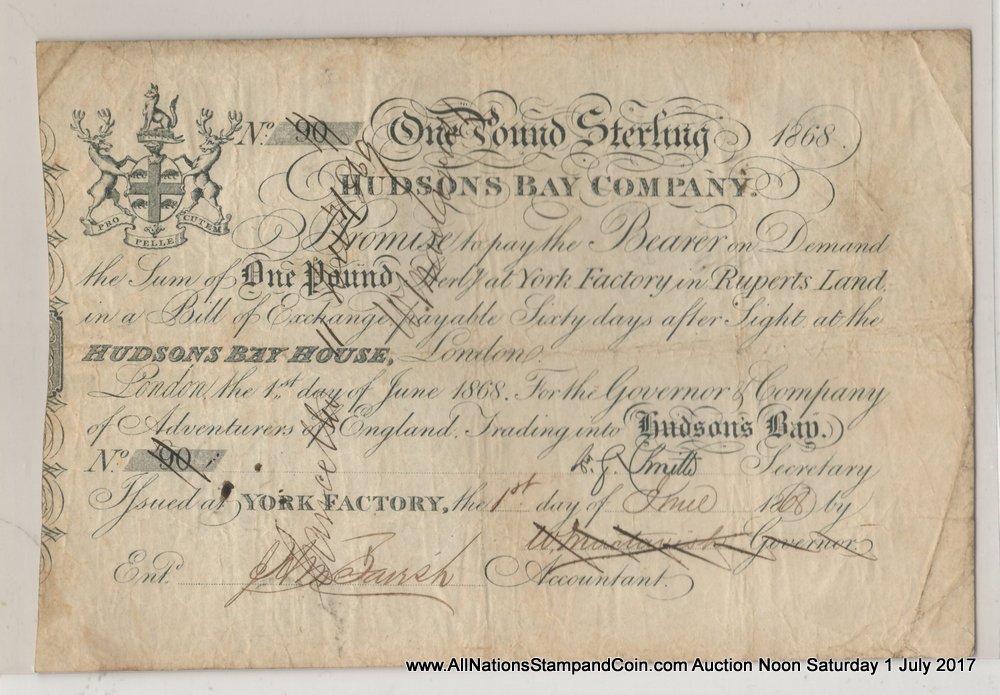 No. 90 One Pound Sterling 1868.
HUDSONS BAY COMPANY.
PRO PELLE CUTEM
Promise to pay the Bearer on Demand
the Sum of One Pound Sterl.g at York Factory in Ruperts Land
in a Bill of Exchange payable Sixty days after Sight at the
HUDSONS BAY HOUSE, London.
London, the 1st day of June 1868. For the Governor & Company
of Adventurers of England, Trading into Hudson's Bay.
No. 90 W. G. Smith Secretary
Issued at YORK FACTORY, the 1st day of June 1868 by
Governor
Ent.d Accountant.
www.AllNationsStampandCoin.com Auction Noon Saturday 1 July 2017